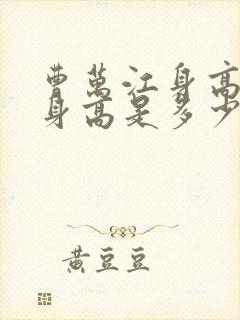 曹萬江身高
身高是多少
黃豆豆